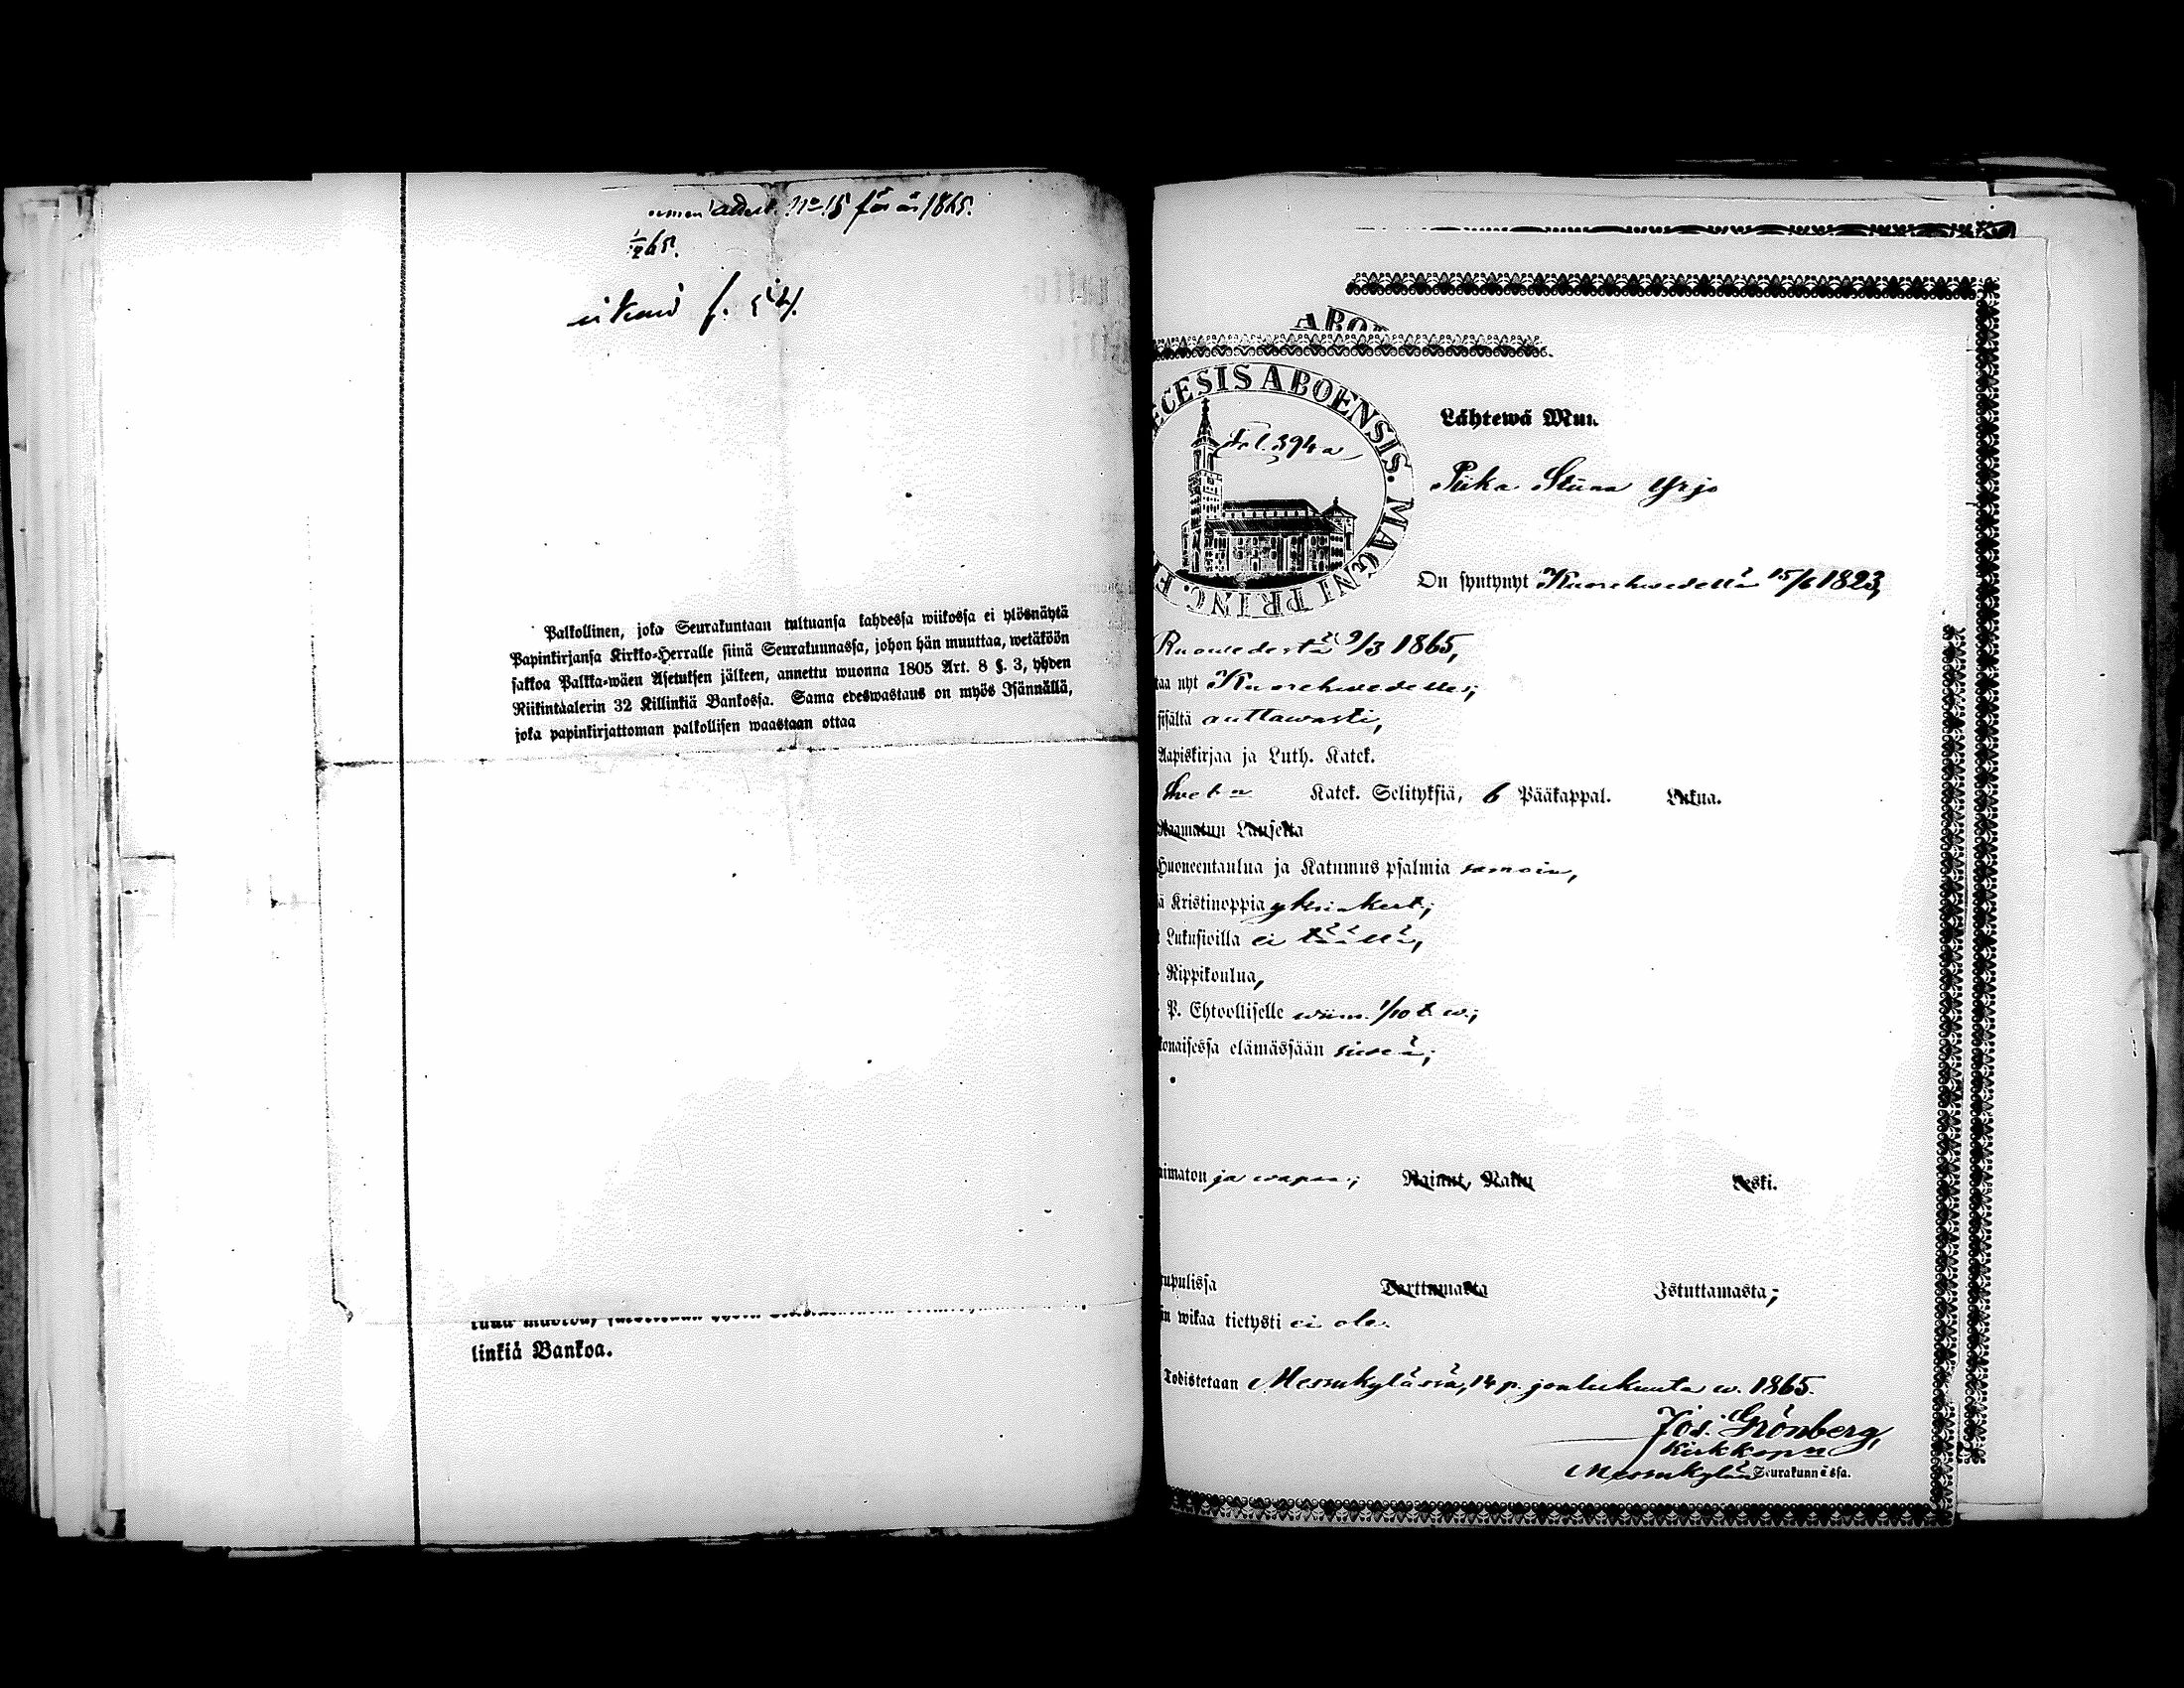 attest. No 15 för år 1865.
1/2 65.
f. 54.
Palkollinen, joka Seurakuntaan tultuansa kahdessa wiikossa ei ylösnäytä
Papinkirjansa Kirkko-Herralle siinä Seurakunnassa, johon hän muuttaa, wetäköön
sakkoa Palkka-wäen Asetuksen jälkeen, annettu wuonna 1805 Art. 8 §. 3, yhden
Riikintaalerin 32 Killinkiä Bankossa. Sama edeswastaus on myös Isännällä,
joka papinkirjattoman palkollisen waastaan ottaa
linkiä Bankoa.
ABO
ECESIS ABOENSIS. MAGNI PRINC. F
Fol. 394 a
Lähtewä Muu
Piika Stiina Yrjo
On syntynyt Kuorehwedellä 15/6 1823,
Ruowedestä 9/3 1865,
taa nyt Kuorehwedelle;
sisältä auttawasti,
Aapiskirjaa ja Luth. Katek.
Katek. Selityksiä, 6 Pääkappal. Lukua.
Raamatun Lauseita
Huoneentaulua ja Katumus psalmia samoin,
ä Kristinoppia yksinkert.;
Lukusioilla ei täällä,
Rippikoulua,
P. Ehtoolliselle wiim. 1/10 t. w.;
konaisessa elämässään siiviä;
aimaton ja wapaa; Nainut, Naitu Leski.
upulissa Tarttumasta Istuttamasta;
än wikaa tietysti ei ole.
Todistetaan Messukylässä, 14 p. joulukuuta w. 1865.
Jos. Grönberg,
Kirkkop:n
Messukylän Seurakunnassa.